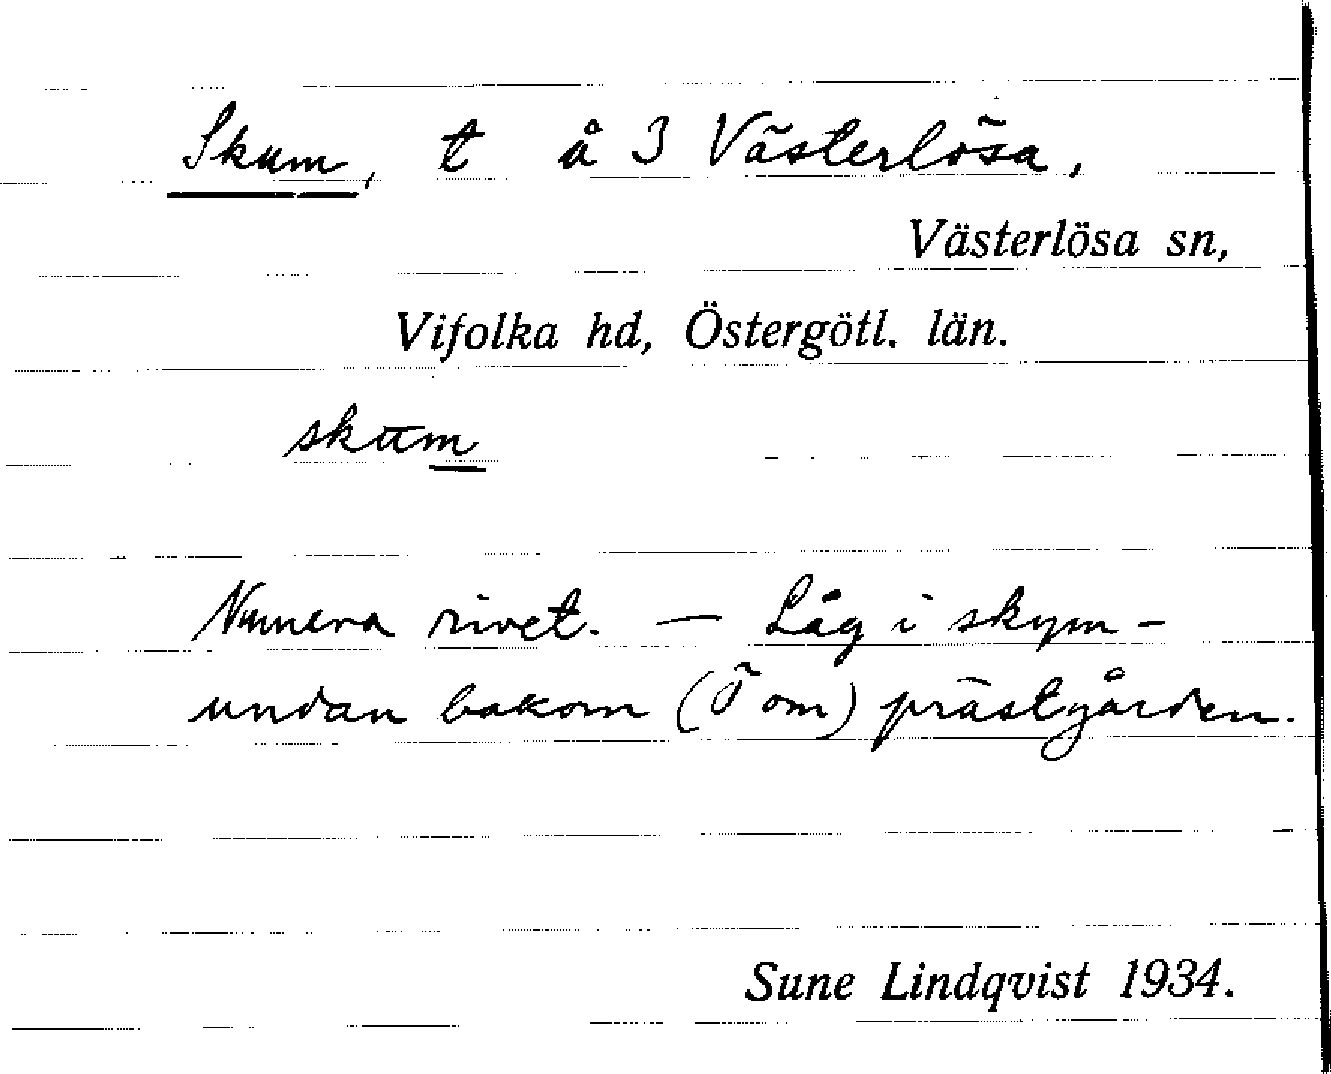 Skum, t å 3 Västerlösa,
Västerlösa sn,
Vifolka hd, Östergötl. län.
skum
Numera rivet. — Låg i skym-
undan bakom (Ö om) prästgården.
Sune Lindqvist 1934.